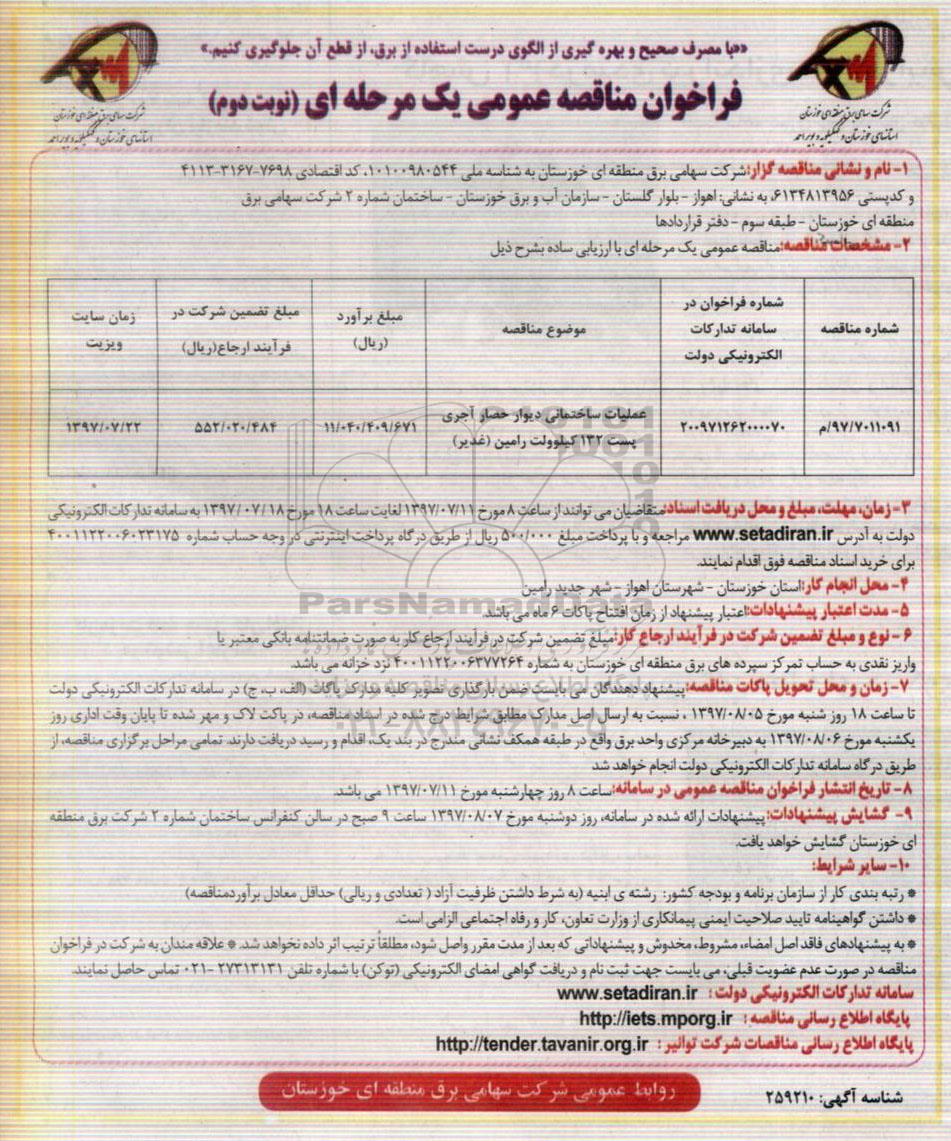 ««با مصرف صحیح و بهره گیری از الگوی درست استفاده از برق، از قطع آن جلوگیری کنیم.»
فراخوان مناقصه عمومی یک مرحله ای (نوبت دوم)
شرکت سهامی برق منطقه ای خوزستان
استانهای خوزستان و کهگیلویه و بویراحمد
شرکت سهامی برق منطقه ای خوزستان
استانهای خوزستان و کهگیلویه و بویراحمد
۱- نام و نشانی مناقصه گزار: شرکت سهامی برق منطقه ای خوزستان به شناسه ملی ۱۰۱۰۰۹۸۰۵۴۴، کد اقتصادی ۷۶۹۸-۳۱۶۷-۴۱۱۳
و کدپستی ۶۱۳۴۸۱۳۹۵۶، به نشانی: اهواز - بلوار گلستان - سازمان آب و برق خوزستان - ساختمان شماره ۲ شرکت سهامی برق
منطقه ای خوزستان - طبقه سوم - دفتر قراردادها
۲- مشخصات مناقصه: مناقصه عمومی یک مرحله ای با ارزیابی ساده بشرح ذیل
شماره مناقصه | شماره فراخوان در سامانه تدارکات الکترونیکی دولت | موضوع مناقصه | مبلغ برآورد (ریال) | مبلغ تضمین شرکت در فرآیند ارجاع(ریال) | زمان سایت ویزیت
۹۷/۷۰۱۱۰۹۱/م | ۲۰۰۹۷۱۲۶۲۰۰۰۰۷۰ | عملیات ساختمانی دیوار حصار آجری پست ۱۳۲ کیلوولت رامین (غدیر) | ۱۱/۰۴۰/۴۰۹/۶۷۱ | ۵۵۲/۰۲۰/۴۸۴ | ۱۳۹۷/۰۷/۲۲
۳- زمان، مهلت، مبلغ و محل دریافت اسناد: متقاضیان می توانند از ساعت ۸ مورخ ۱۳۹۷/۰۷/۱۱ لغایت ساعت ۱۸ مورخ ۱۸ / ۰۷ / ۱۳۹۷ به سامانه تدارکات الکترونیکی
دولت به آدرس www.setadiran.ir مراجعه و با پرداخت مبلغ ۵۰۰/۰۰۰ ریال از طریق درگاه پرداخت اینترنتی در وجه حساب شماره ۴۰۰۱۱۲۲۰۰۶۰۲۳۱۷۵
برای خرید اسناد مناقصه فوق اقدام نمایند.
۴- محل انجام کار: استان خوزستان - شهرستان اهواز - شهر جدید رامین
۵- مدت اعتبار پیشنهادات: اعتبار پیشنهاد از زمان افتتاح پاکات ۶ ماه می باشد.
۶- نوع و مبلغ تضمین شرکت در فرآیند ارجاع کار: مبلغ تضمین شرکت در فرآیند ارجاع کار به صورت ضمانتنامه بانکی معتبر یا
واریز نقدی به حساب تمرکز سپرده های برق منطقه ای خوزستان به شماره ۴۰۰۱۱۲۲۰۰۶۳۷۷۲۶۴ نزد خزانه می باشد.
۷- زمان و محل تحویل پاکات مناقصه: پیشنهاد دهندگان می بایست ضمن بارگذاری تصویر کلیه مدارک پاکات (الف، ب، ج) در سامانه تدارکات الکترونیکی دولت
تا ساعت ۱۸ روز شنبه مورخ ۱۳۹۷/۰۸/۰۵ ، نسبت به ارسال اصل مدارک مطابق شرایط درج شده در اسناد مناقصه، در پاکت لاک و مهر شده تا پایان وقت اداری روز
یکشنبه مورخ ۱۳۹۷/۰۸/۰۶ به دبیرخانه مرکزی واحد برق واقع در طبقه همکف نشانی مندرج در بند یک، اقدام و رسید دریافت دارند. تمامی مراحل برگزاری مناقصه، از
طریق درگاه سامانه تدارکات الکترونیکی دولت انجام خواهد شد
۸- تاریخ انتشار فراخوان مناقصه عمومی در سامانه: ساعت ۸ روز چهارشنبه مورخ ۱۳۹۷/۰۷/۱۱ می باشد.
۹- گشایش پیشنهادات: پیشنهادات ارائه شده در سامانه، روز دوشنبه مورخ ۱۳۹۷/۰۸/۰۷ ساعت ۹ صبح در سالن کنفرانس ساختمان شماره ۲ شرکت برق منطقه
ای خوزستان گشایش خواهد یافت.
۱۰- سایر شرایط:
* رتبه بندی کار از سازمان برنامه و بودجه کشور: رشته ی ابنیه (به شرط داشتن ظرفیت آزاد ( تعدادی و ریالی) حداقل معادل برآوردمناقصه)
* داشتن گواهینامه تایید صلاحیت ایمنی پیمانکاری از وزارت تعاون، کار و رفاه اجتماعی الزامی است.
* به پیشنهادهای فاقد اصل امضاء، مشروط، مخدوش و پیشنهاداتی که بعد از مدت مقرر واصل شود، مطلقاً ترتیب اثر داده نخواهد شد. * علاقه مندان به شرکت در فراخوان
مناقصه در صورت عدم عضویت قبلی، می بایست جهت ثبت نام و دریافت گواهی امضای الکترونیکی (توکن) با شماره تلفن ۲۷۳۱۳۱۳۱ -۰۲۱ تماس حاصل نمایند.
سامانه تدارکات الکترونیکی دولت : www.setadiran.ir
پایگاه اطلاع رسانی مناقصه : http://iets.mporg.ir
پایگاه اطلاع رسانی مناقصات شرکت توانیر : http://tender.tavanir.org.ir
روابط عمومی شرکت سهامی برق منطقه ای خوزستان
شناسه آگهی: ۲۵۹۲۱۰
ParsNamadData